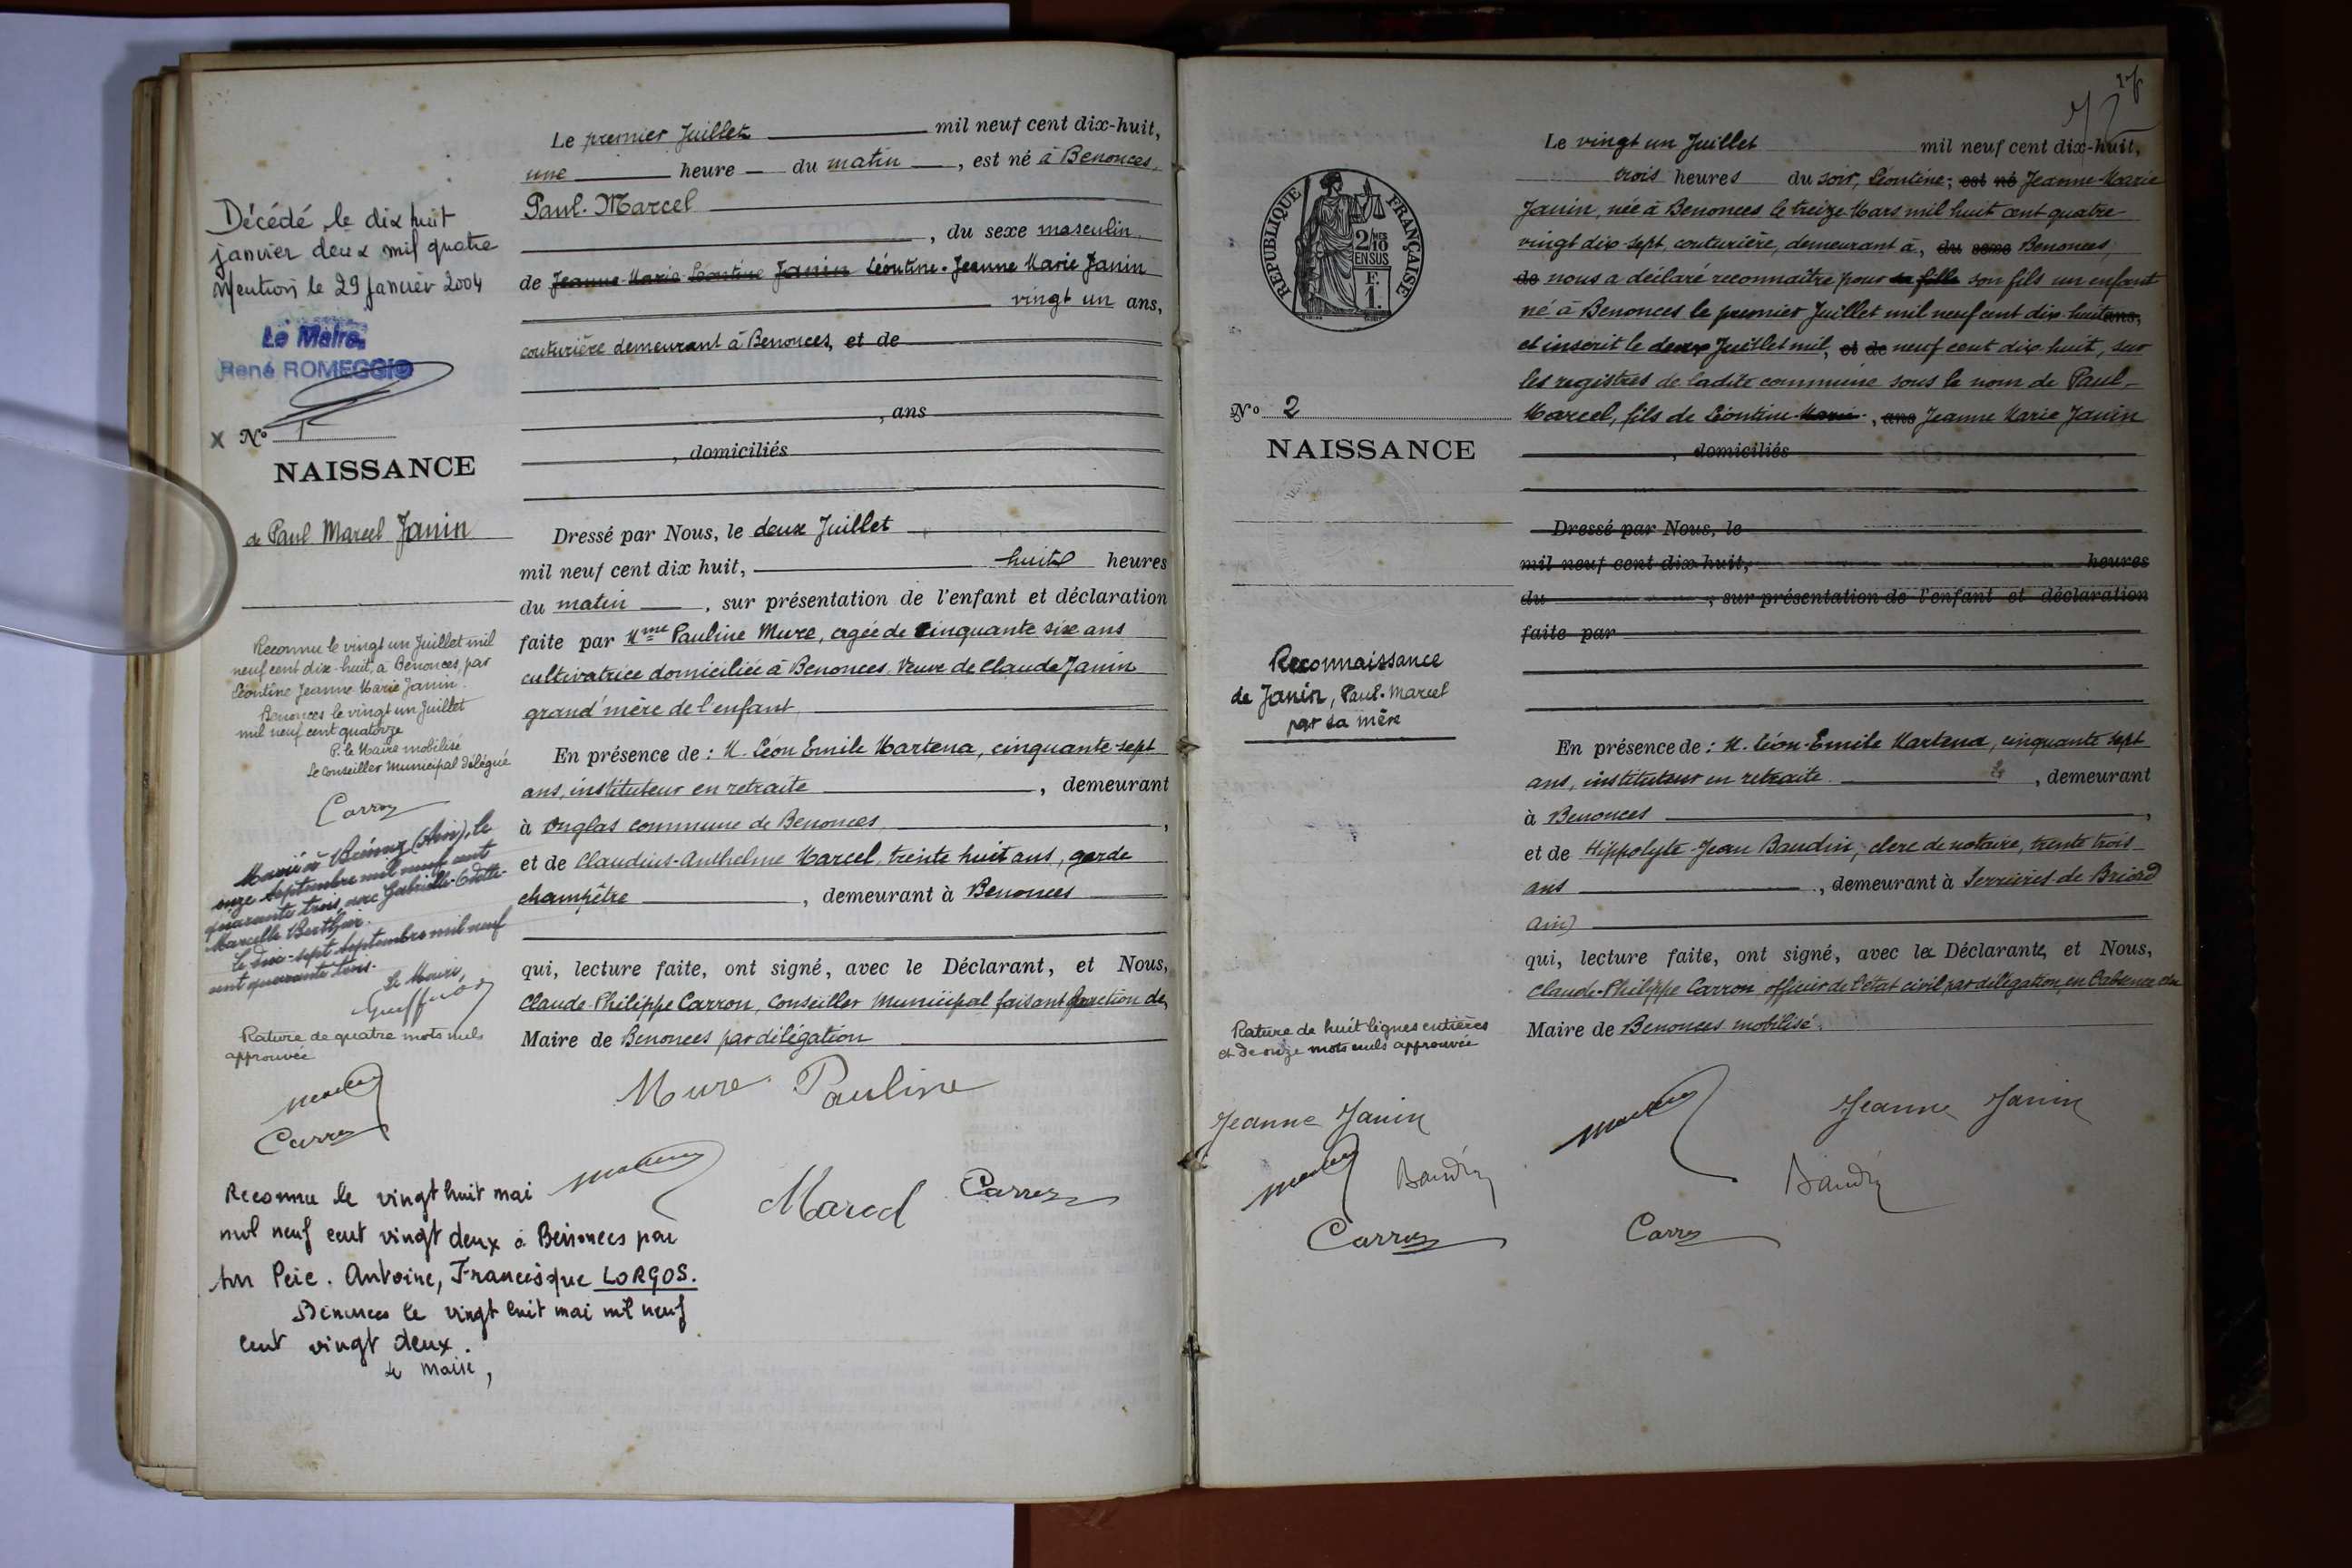 Décédé le dix huit
janvier deux mil quatre
Mention le 29 janvier 2004
Le Maire,
René ROMEGGIO
X N° 1
NAISSANCE
de Paul Marcel Janin
Reconnu le vingt un Juillet mil
neuf cent dix-huit, à Benonces, par
Léontine Jeanne Marie Janin.
Benonces le vingt un Juillet
mil neuf cent quatorze
P. le Maire mobilisé
Le Conseiller Municipal délégué
Carron
Marié à (Ain), le
onze septembre mil neuf cent
quarante trois, avec Gabrielle-Odette-
Marcelle Berthier.
Le dix-sept septembre mil neuf
cent quarante trois.
Le Maire,
Rature de quatre mots nuls
approuvée
Carron
Reconnu le vingt huit mai
mil neuf cent vingt deux à Benonces par
son Père. Antoine, Francisque LORGOS.
Benonces le vingt huit mai mil neuf
cent vingt deux.
Le Maire,
Le premier Juillet mil neuf cent dix-huit,
une heure du matin, est né à Benonces,
Paul-Marcel
, du sexe masculin,
de Jeanne-Marie-Léontine Janin Léontine-Jeanne Marie Janin
vingt un ans,
couturière demeurant à Benonces, et de
, ans
, domiciliés
Dressé par Nous, le deux Juillet
mil neuf cent dix huit, huit heures
du matin, sur présentation de l'enfant et déclaration
faite par Mme Pauline Mure, agée de cinquante six ans
cultivatrice domiciliée à Benonces, Veuve de Claude Janin
grand'mère de l'enfant
En présence de : M. Léon Emile Martena, cinquante-sept
ans, instituteur en retraite, demeurant
à Onglas commune de Benonces,
et de Claudius-Anthelme Marcel, trente huit ans, garde
champêtre, demeurant à Benonces
qui, lecture faite, ont signé, avec le Déclarant, et Nous,
Claude-Philippe Carron, Conseiller Municipal faisant fonction de,
Maire de Benonces par délégation
Mure Pauline
Marcel Carron
N° 2
NAISSANCE
REPUBLIQUE FRANÇAISE
2/10 MES
EN SUS
F.
1.
Reconnaissance
de Janin, Paul-Marcel
par sa mère
Rature de huit lignes entières
et de onze mots nuls approuvée
Jeanne Janin
Baudin
Carron
Le vingt un Juillet mil neuf cent dix-huit,
trois heures du soir, Léontine, est né Jeanne-Marie
Janin, née à Benonces le treize Mars mil huit cent quatre
vingt dix-sept, couturière, demeurant à, du sexe Benonces,
de nous a déclaré reconnaître pour sa fille son fils un enfant
né à Benonces le premier Juillet mil neuf cent dix-huit ans,
et inscrit le deux Juillet mil, et de neuf cent dix huit, sur
les registres de ladite commune sous le nom de Paul-
Marcel, fils de Léontine-Marie-, ans Jeanne Marie Janin
, domiciliés
Dressé par Nous, le
mil neuf cent dix-huit, heures
du, sur présentation de l'enfant et déclaration
faite par
En présence de : M. Léon-Emile Martena, cinquante sept
ans, instituteur en retraite, demeurant
à Benonces,
et de Hippolyte-Jean Baudin, clerc de notaire, trente trois
ans, demeurant à Serrières-de Briord
Ain)
qui, lecture faite, ont signé, avec la Déclarante, et Nous,
Claude-Philippe Carron, officier de l'état civil par délégation, en l'absence du
Maire de Benonces mobilisé.
Jeanne Janin
Baudin
Carron